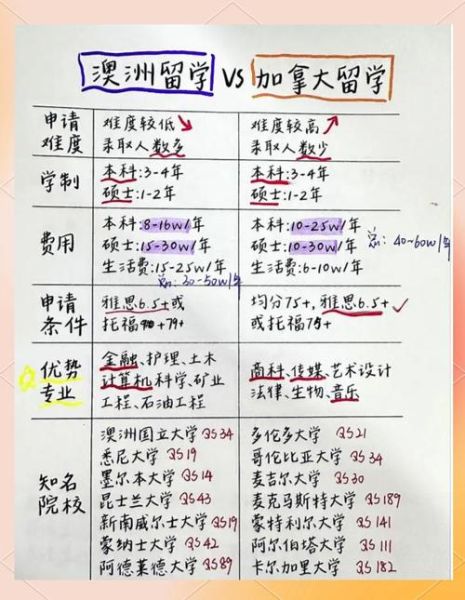 澳洲留学 VS 加拿大留学
申请难度
难度较低↘
录取人数多
难度较高↗
录取人数少
学制
本科:3-4年
硕士:1-2年
本科:3-4年
硕士:1-2年
费用
本科:8-16w/年
硕士:15-30w/年
生活费:15-25w/年
总:30-50w/年
本科:10-25w/年
硕士:10-30w/年
生活费:6-10w/年
总:40-60w/年
申请条件
雅思6.5+或
托福79+
均分75+,雅思6.5+✓
或托福75+
优势专业
金融、护理、土木
计算机科学、矿业
工程、石油工程
商科、传媒、艺术设计
法律、生物、音乐
知名院校
澳洲国立大学 QS34
悉尼大学 QS19
墨尔本大学 QS14
昆士兰大学 QS43
新南威尔士大学 QS19
蒙纳士大学 QS42
阿德莱德大学 QS89
多伦多大学 QS21
哥伦比亚大学 QS34
麦吉尔大学 QS30
麦克马斯特大学 QS189
蒙特利尔大学 QS141
阿尔伯塔大学 QS111
卡尔加里大学 QS182